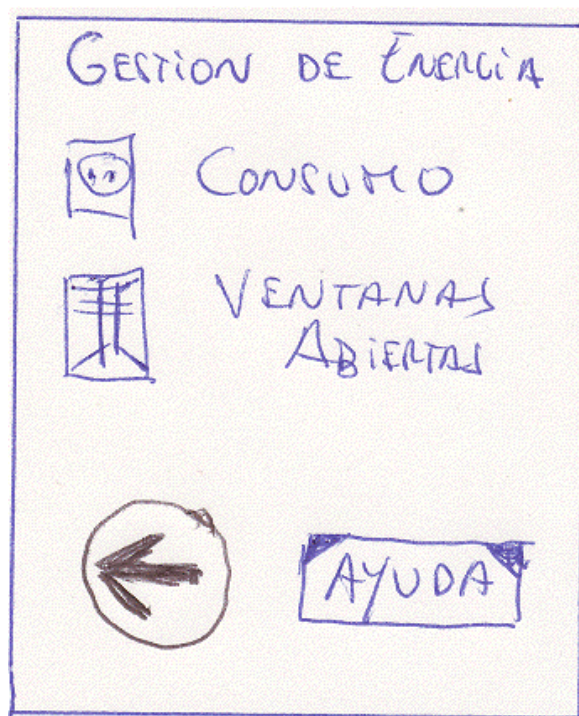 GESTION DE ENERGIA
CONSUMO
VENTANAS
ABIERTAS
AYUDA